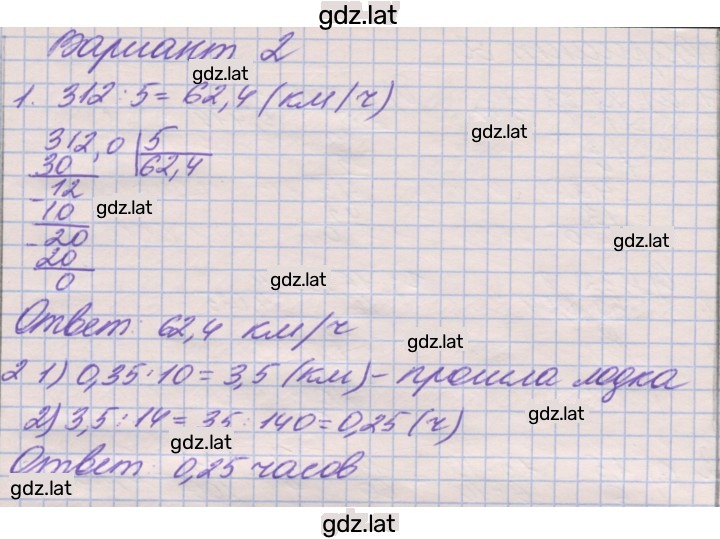 gdz.lat
Вариант 2
gdz.lat
1. 312 : 5 = 62,4 (км/ч)
gdz.lat
312,0 | 5
30 62,4
- 12
10
gdz.lat
- 20
gdz.lat
20
0
gdz.lat
Ответ: 62,4 км/ч
gdz.lat
2 1) 0,35 · 10 = 3,5 (км) - прошла лодка
2) 3,5 : 14 = 35 : 140 = 0,25 (ч)
gdz.lat
gdz.lat
Ответ: 0,25 часов
gdz.lat
gdz.lat